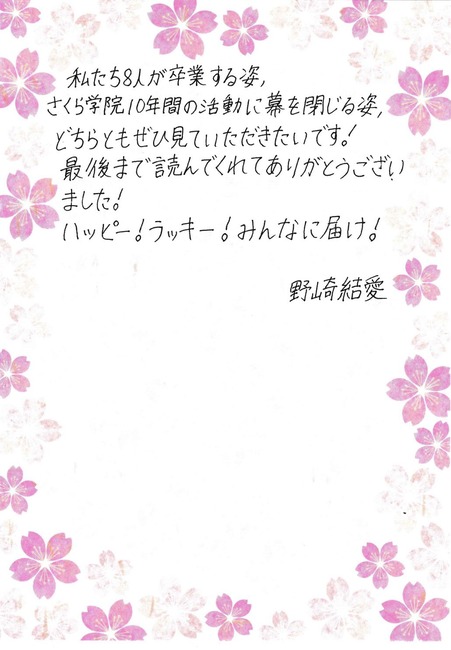 私たち8人が卒業する姿,
さくら学院10年間の活動に幕を閉じる姿,
どちらともぜひ見ていただきたいです!
最後まで読んでくれてありがとうござい
ました!
ハッピー!ラッキー!みんなに届け!
野崎結愛